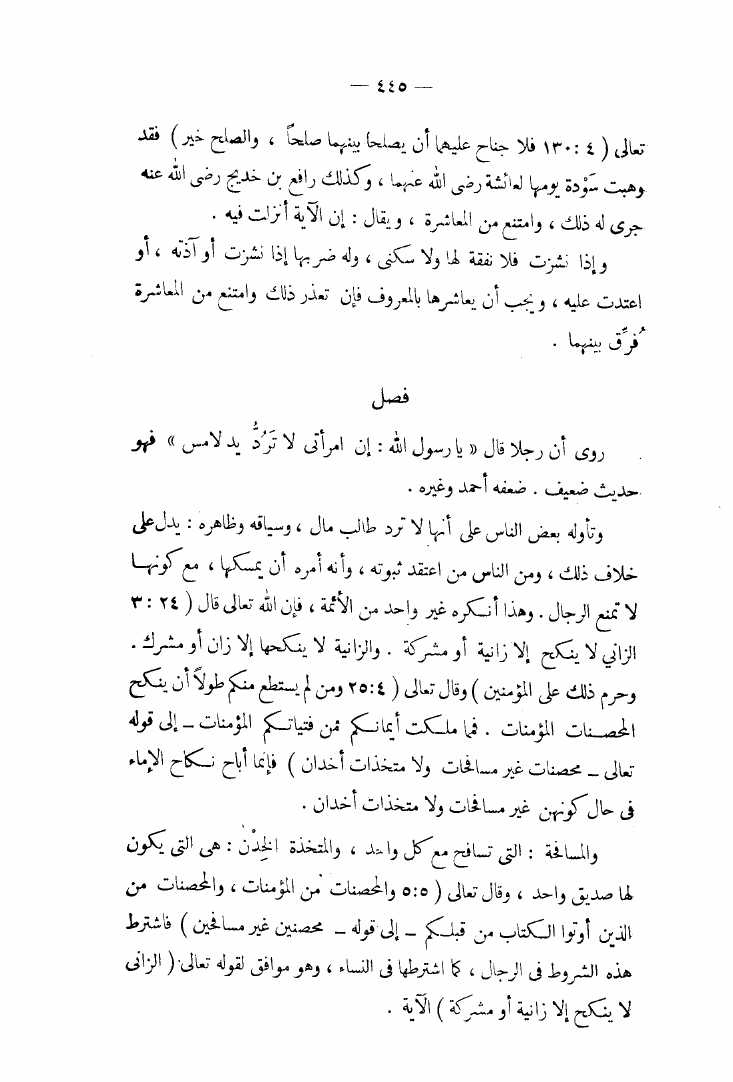 — ٤٤٥ —
تعالى ( ٤ : ١٣٠ فلا جناح عليهما أن يصلحا بينهما صلحاً ، والصلح خير ) فقد
وهبت سَوْدة يومها لعائشة رضى الله عنهما ، وكذلك رافع بن خديج رضى الله عنه
جرى له ذلك ، وامتنع من المعاشرة ، ويقال : إن الآية أنزلت فيه .
وإذا نشزت فلا نفقة لها ولا سكنى ، وله ضربها إذا نشزت أو آذته ، أو
اعتدت عليه ، ويجب أن يعاشرها بالمعروف فإن تعذر ذلك وامتنع من المعاشرة
فُرِّق بينهما .
فصل
روى أن رجلا قال « يا رسول الله : إن امرأتى لا تَرُدُّ يد لامس » فهو
حديث ضعيف . ضعفه أحمد وغيره .
وتأوله بعض الناس على أنها لا ترد طالب مال ، وسياقه وظاهره : يدل على
خلاف ذلك ، ومن الناس من اعتقد ثبوته ، وأنه أمره أن يمسكها ، مع كونها
لا تمنع الرجال . وهذا أنكره غير واحد من الأئمة ، فإن الله تعالى قال ( ٢٤ : ٣
الزاني لا ينكح إلا زانية أو مشركة . والزانية لا ينكحها إلا زان أو مشرك .
وحرم ذلك على المؤمنين ) وقال تعالى ( ٤ : ٢٥ ومن لم يستطع منكم طولاً أن ينكح
المحصنات المؤمنات . فمما ملكت أيمانكم من فتياتكم المؤمنات ــ إلى قوله
تعالى ــ محصنات غير مسافحات ولا متخذات أخدان ) فإنما أباح نكاح الإماء
فى حال كونهن غير مسافحات ولا متخذات أخدان .
والمسافحة : التى تسافح مع كل واحد ، والمتخذة الخِدْن : هى التى يكون
لها صديق واحد ، وقال تعالى ( ٥ : ٥ والمحصنات من المؤمنات ، والمحصنات من
الذين أوتوا الكتاب من قبلكم ــ إلى قوله ــ محصنين غير مسافحين ) فاشترط
هذه الشروط فى الرجال ، كما اشترطها فى النساء ، وهو موافق لقوله تعالى ( الزانى
لا ينكح إلا زانية أو مشركة ) الآية .